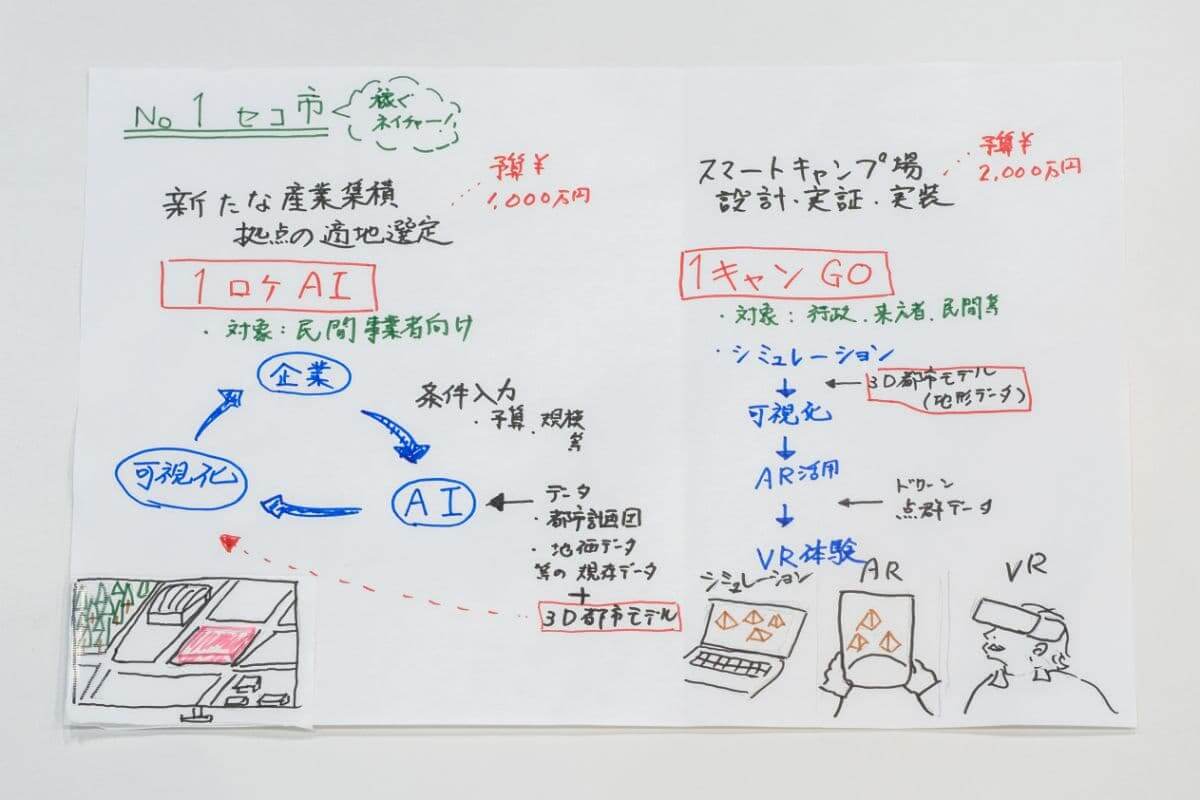 No1 セコ市
稼ぐ
ネイチャー!!
新たな産業集積
拠点の適地選定
予算¥
1,000万円
1ロケAI
・対象：民間事業者向け
企業
条件入力
・予算、規模
等
AI
可視化
データ
・都市計画図
・地価データ
等の既存データ
+
3D都市モデル
スマートキャンプ場
設計・実証・実装
予算¥
2,000万円
1キャンGO
・対象：行政、来方者、民間等
・シミュレーション
↓
可視化
↓
AR活用
↓
VR体験
3D都市モデル
(地形データ)
ドローン
点群データ
シミュレーション
AR
VR